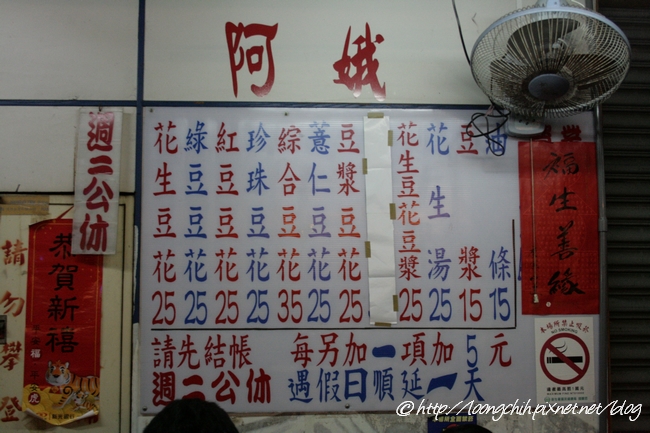 阿娥
週二公休
恭賀新禧
福
虎
請勿攀登
花生豆花25
綠豆豆花25
紅豆豆花25
珍珠豆花25
綜合豆花35
薏仁豆花25
豆漿豆花25
花生豆花豆漿25
花生湯25
豆漿15
油條15
請先結帳 每另加一項加5元
週二公休 遇假日順延一天
福生善緣
本場所禁止吸菸
©http://loongchih.pixnet.net/blog